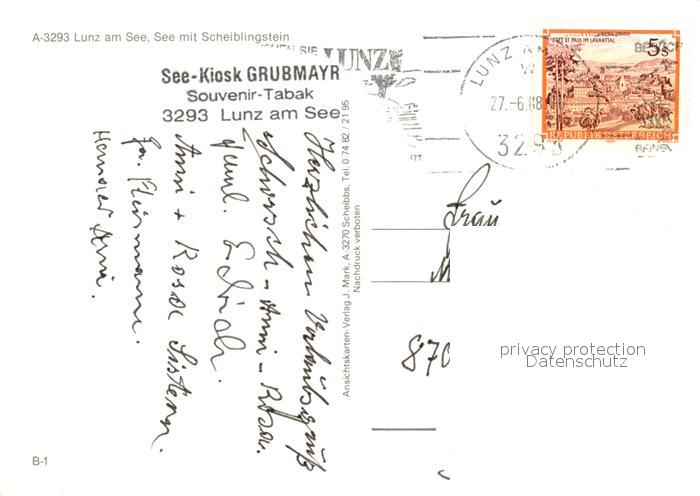 A-3293 Lunz am See, See mit Scheiblingstein
LUNZ
See-Kiosk GRUBMAYR
Souvenir-Tabak
3293 Lunz am See
LUNZ AM
27.-6.88
3293
STIFT ST. PAUL IM LAVANTTAL
5s
REPUBLIK ÖSTERREICH
Herzlichen Urlaubsgruß
Schorsch - Anni - Rosa.
Anni + Rosa
Ansichtskarten-Verlag J. Mark, A-3270 Scheibbs, Tel. 0 74 82 / 21 95
Nachdruck verboten
Frau
M
870
privacy protection
Datenschutz
B-1